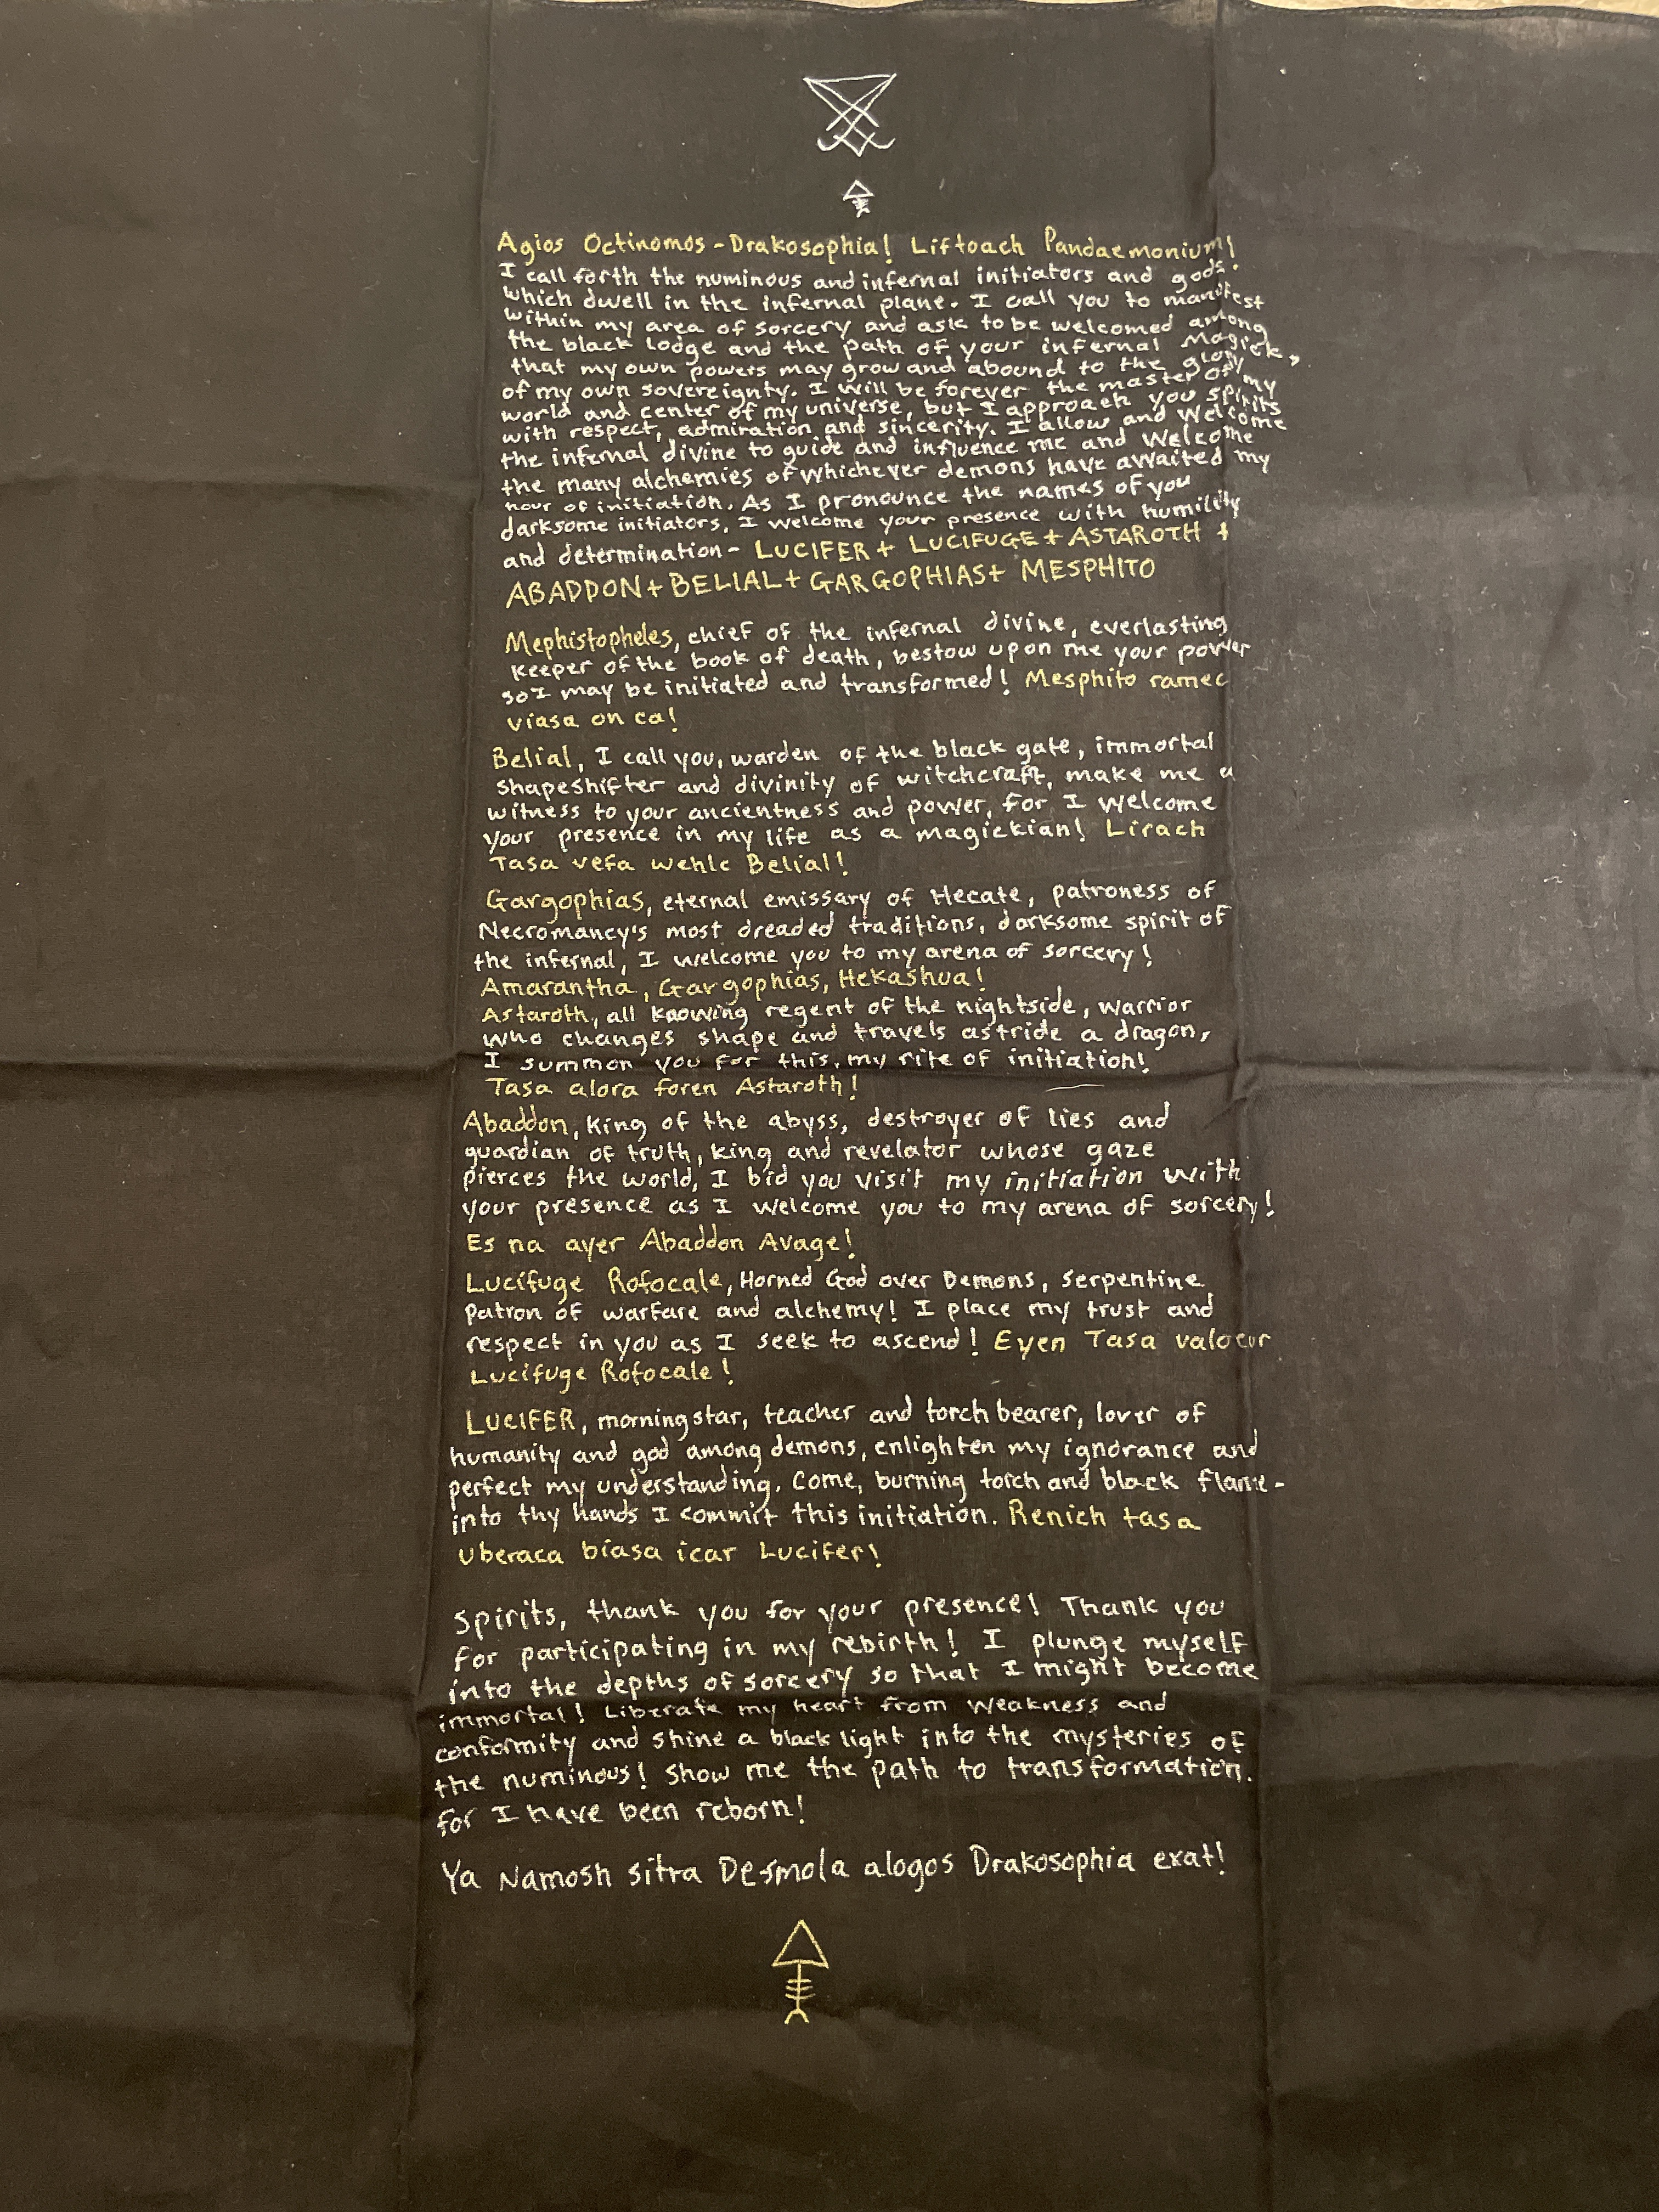 Agios Octinomos - Drakosophia! Liftoach Pandaemonium!
I call forth the numinous and infernal initiators and gods.
which dwell in the infernal plane. I call you to manifest
within my area of sorcery and ask to be welcomed among
the black lodge and the path of your infernal Magick,
that my own powers may grow and abound to the glory
of my own sovereignty. I will be forever the master of my
world and center of my universe, but I approach you spirits
with respect, admiration and sincerity. I allow and welcome
the infernal divine to guide and influence me and welcome
the many alchemies of whichever demons have awaited my
hour of initiation. As I pronounce the names of you
darksome initiators, I welcome your presence with humility
and determination - LUCIFER + LUCIFUGE + ASTAROTH +
ABADDON + BELIAL + GARGOPHIAS + MESPHITO
Mephistopheles, chief of the infernal divine, everlasting
keeper of the book of death, bestow upon me your power
so I may be initiated and transformed! Mesphito ramec
viasa on ca!
Belial, I call you, warden of the black gate, immortal
shapeshifter and divinity of witchcraft, make me a
witness to your ancientness and power, for I welcome
your presence in my life as a magickian! Lirach
Tasa vefa wehlc Belial!
Gargophias, eternal emissary of Hecate, patroness of
Necromancy's most dreaded traditions, darksome spirit of
the infernal, I welcome you to my arena of sorcery!
Amarantha, Gargophias, Hekashua!
Astaroth, all knowing regent of the nightside, warrior
who changes shape and travels astride a dragon,
I summon you for this, my rite of initiation!
Tasa alora foren Astaroth!
Abaddon, king of the abyss, destroyer of lies and
guardian of truth, king and revelator whose gaze
pierces the world, I bid you visit my initiation with
your presence as I welcome you to my arena of sorcery!
Es na ayer Abaddon Avage!
Lucifuge Rofocale, Horned God over Demons, serpentine
patron of warfare and alchemy! I place my trust and
respect in you as I seek to ascend! Eyen Tasa valocur
Lucifuge Rofocale!
LUCIFER, morningstar, teacher and torch bearer, lover of
humanity and god among demons, enlighten my ignorance and
perfect my understanding. Come, burning torch and black flame -
into thy hands I commit this initiation. Renich tasa
Uberaca biasa icar Lucifer!
Spirits, thank you for your presence! Thank you
for participating in my rebirth! I plunge myself
into the depths of sorcery so that I might become
immortal! Liberate my heart from weakness and
conformity and shine a black light into the mysteries of
the numinous! Show me the path to transformation.
for I have been reborn!
Ya Namosh sitra Desmola alogos Drakosophia exat!